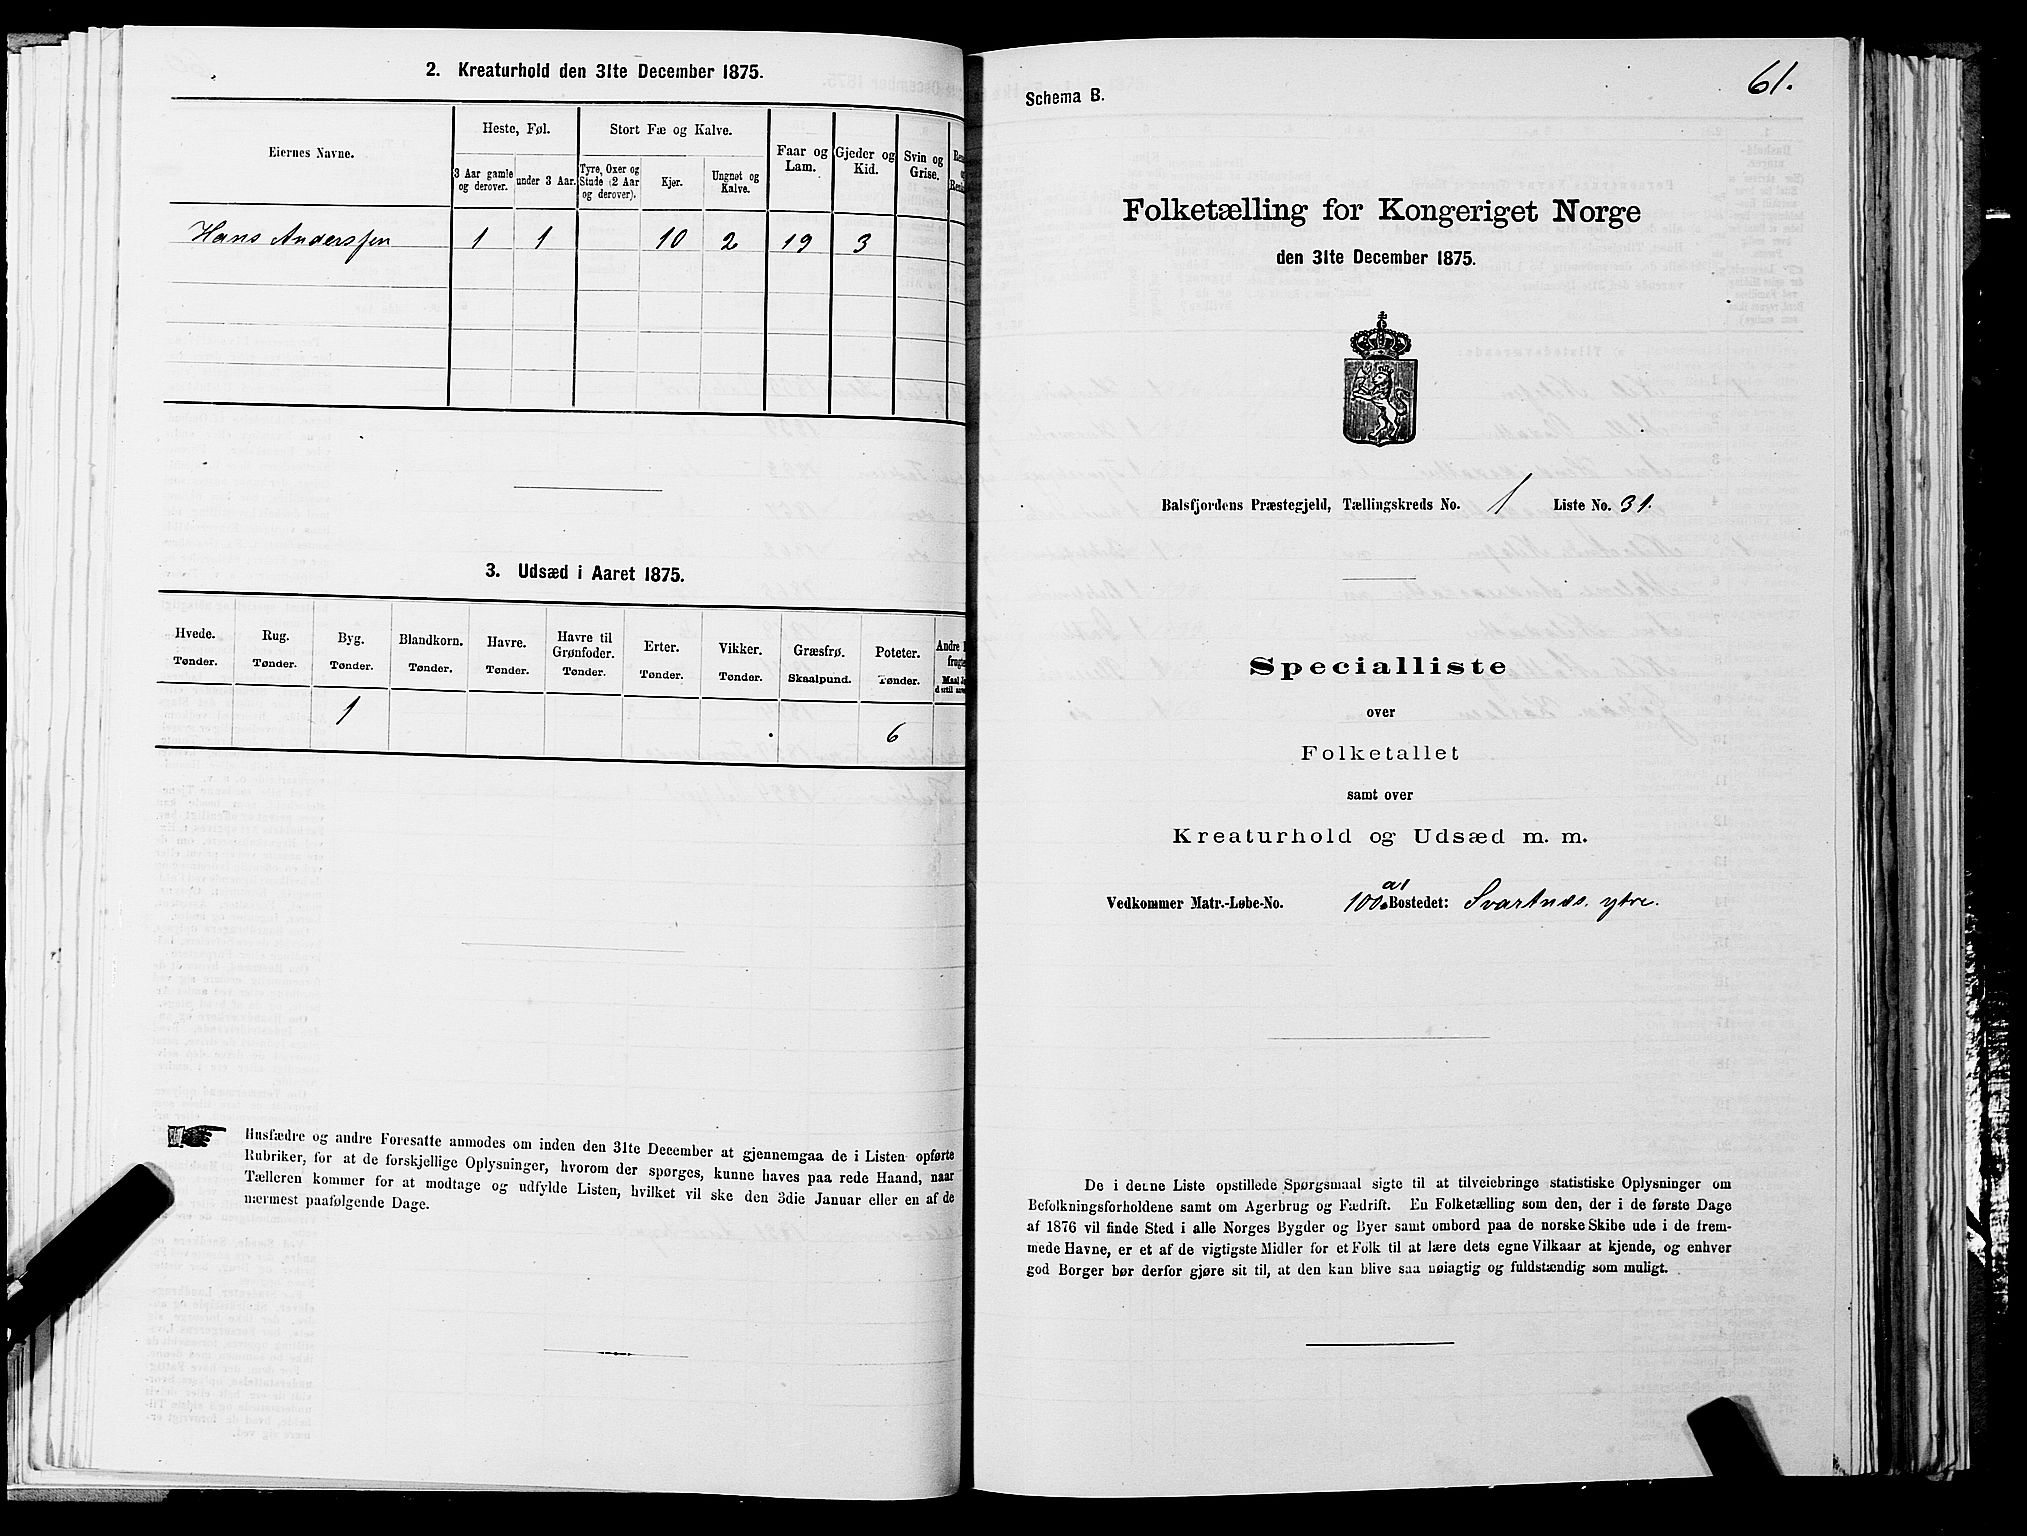 2. Kreaturhold den 31te December 1875.
Eiernes Navne.
Heste, Føl.
Stort Fæ og Kalve.
Faar og
Lam.
Gjeder og
Kid.
Svin og
Grise.
3 Aar gamle
og derover.
under 3 Aar.
Tyre, Oxer og
Stude (2 Aar
og derover).
Kjer.
Ungnøt og
Kalve.
Hans Anderssen 1 1 10 2 19 3
3. Udsæd i Aaret 1875.
Hvede. Rug. Byg. Blandkorn. Havre. Havre til Grønfoder. Erter. Vikker. Græsfrø. Poteter. Andre
Tønder. Tønder. Tønder. Tønder. Tønder. Tønder. Tønder. Tønder. Skaalpund. Tønder. Maal
1 6
Husfædre og andre Foresatte anmodes om inden den 31te December at gjennemgaa de i Listen opførte
Rubriker, for at de forskjellige Oplysninger, hvorom der spørges, kunne haves paa rede Haand, naar
Tælleren kommer for at modtage og udfylde Listen, hvilket vil ske den 3die Januar eller en af de
nærmest paafølgende Dage.
61.
Schema B.
Folketælling for Kongeriget Norge
den 31te December 1875.
Balsfjordens Præstegjeld, Tællingskreds No. 1 Liste No. 31.
Specialliste
over
Folketallet
samt over
Kreaturhold og Udsæd m. m.
Vedkommer Matr.-Løbe-No. 100 a1 Bostedet: Svartnæs. ytre.
De i denne Liste opstillede Spørgsmaal sigte til at tilveiebringe statistiske Oplysninger om
Befolkningsforholdene samt om Agerbrug og Fædrift. En Folketælling som den, der i de første Dage
af 1876 vil finde Sted i alle Norges Bygder og Byer samt ombord paa de norske Skibe ude i de frem-
mede Havne, er et af de vigtigste Midler for et Folk til at lære dets egne Vilkaar at kjende, og enhver
god Borger bør derfor gjøre sit til, at den kan blive saa nøiagtig og fuldstændig som muligt.